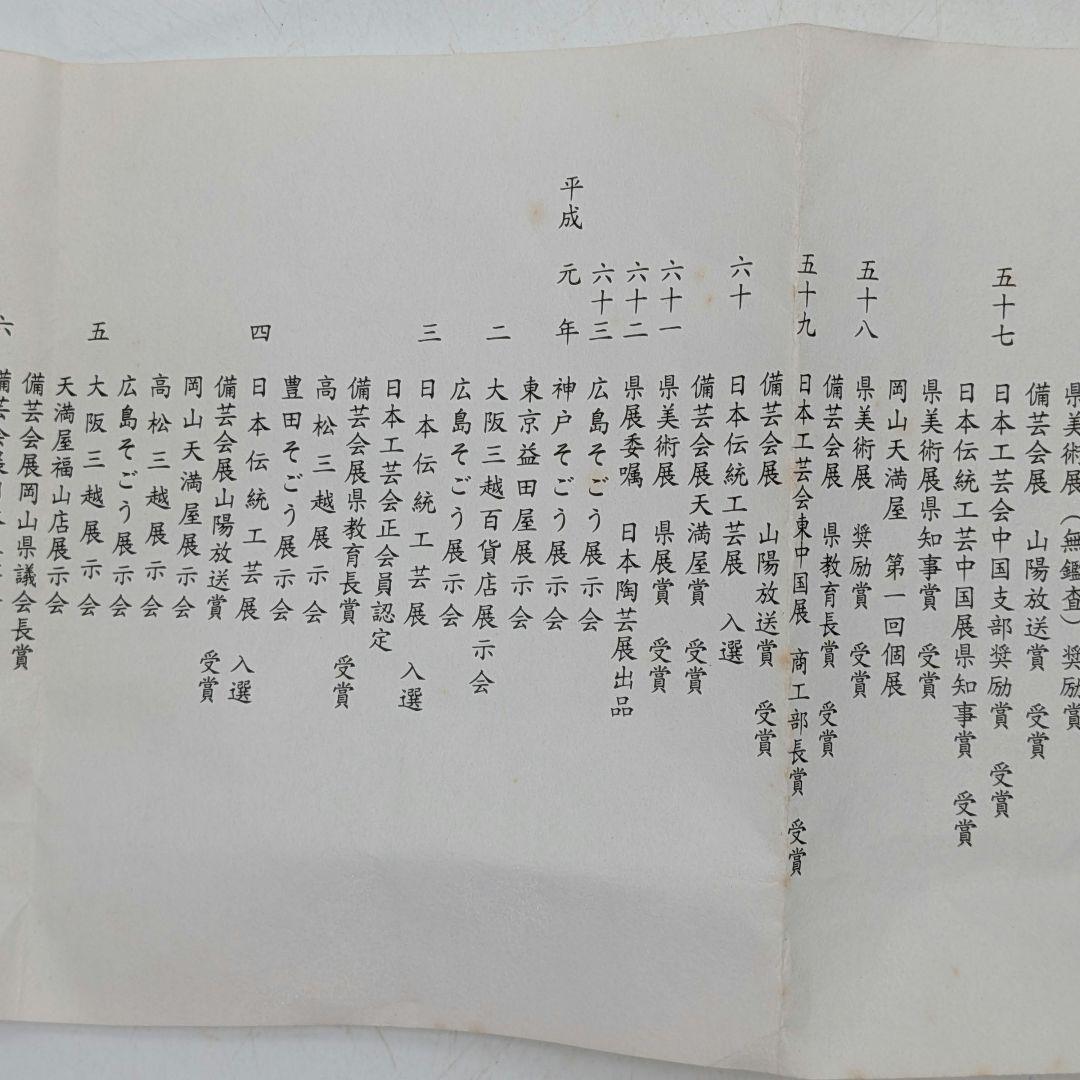 県美術展(無鑑査)奨励賞
備芸会展 山陽放送賞 受賞
五十七 日本工芸会中国支部奨励賞 受賞
日本伝統工芸中国展県知事賞 受賞
県美術展県知事賞 受賞
岡山天満屋 第一回個展
五十八 県美術展 奨励賞 受賞
備芸会展 県教育長賞 受賞
五十九 日本工芸会東中国展 商工部長賞 受賞
備芸会展 山陽放送賞 受賞
六十 日本伝統工芸展 入選
備芸会展天満屋賞 受賞
六十一 県美術展 県展賞 受賞
六十二 県展委嘱 日本陶芸展出品
六十三 広島そごう展示会
平成元年 神戸そごう展示会
東京益田屋展示会
二 大阪三越百貨店展示会
広島そごう展示会
三 日本伝統工芸展 入選
日本工芸会正会員認定
備芸会展県教育長賞 受賞
高松三越展示会
豊田そごう展示会
四 日本伝統工芸展 入選
備芸会展山陽放送賞 受賞
岡山天満屋展示会
高松三越展示会
広島そごう展示会
五 大阪三越展示会
天満屋福山店展示会
備芸会展岡山県議会長賞
六 備芸会展